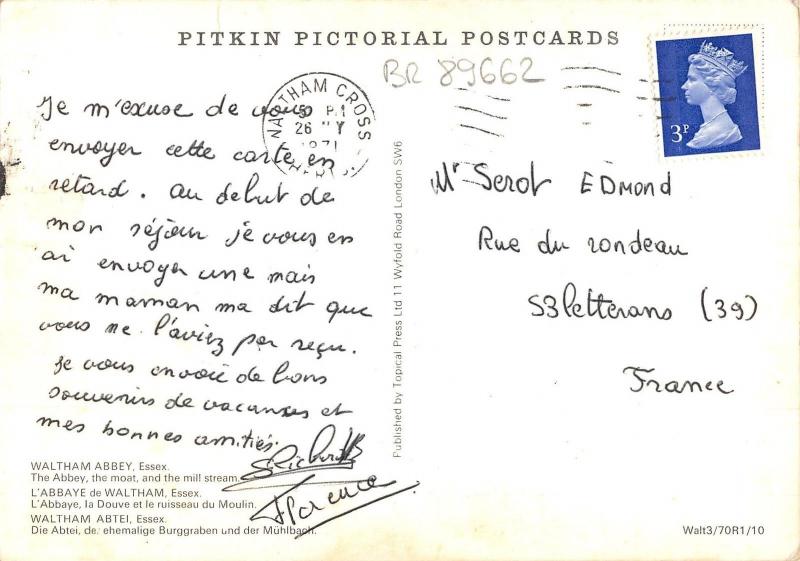 PITKIN PICTORIAL POSTCARDS
BR 89662
WALTHAM CROSS
26 MY
1971
HERTS.
3P
Je m'excuse de vous
envoyer cette carte en
retard. au debut de
mon séjour je vous en
ai envoyer une mais
ma maman ma dit que
vous ne l'aviez pas reçu.
Je vous envoie de bons
souvenirs de vacances et
mes bonnes amitiés.
Florence
Mr Serot EDmond
Rue du rondeau
S3letterans (39)
France
Published by Topical Press Ltd 11 Wyfold Road London SW6
WALTHAM ABBEY, Essex.
The Abbey, the moat, and the mill stream.
L'ABBAYE de WALTHAM, Essex.
L'Abbaye, la Douve et le ruisseau du Moulin.
WALTHAM ABTEI, Essex.
Die Abtei, de. ehemalige Burggraben und der Mühlbach.
Walt3/70R1/10